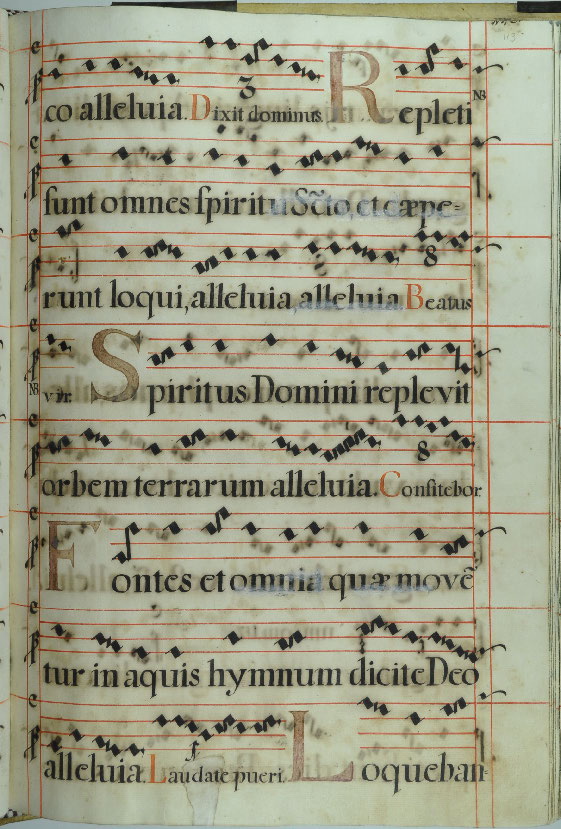 co alleluia. Dixit dominus. Repleti
sunt omnes spiritu Sc̃to et cæpe-
runt loqui, alleluia, alleluia. Beatus
vir. Spiritus Domini replevit
orbem terrarum alleluia. Confitebor
Fontes et omnia quæ movẽ
tur in aquis hymnum dicite Deo
alleluia. Laudate pueri. Loqueban-